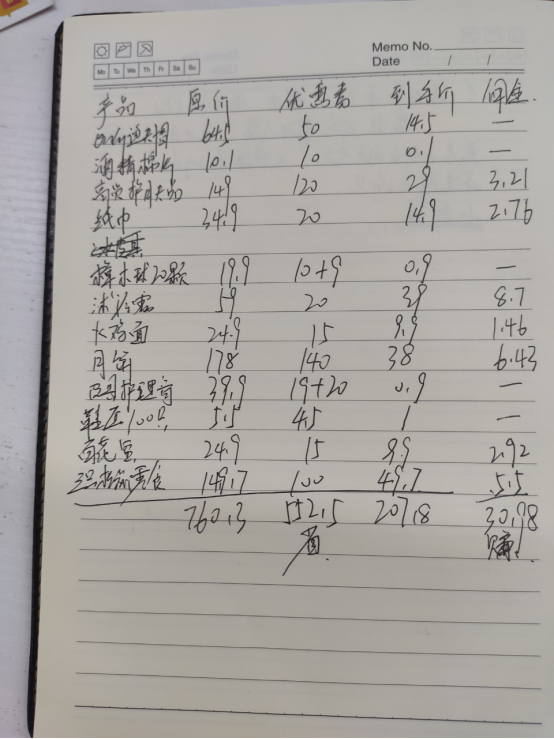 Memo No.
Mo Tu We Th Fr Sa Su
Date / /
产品 原价 优惠卷 到手价 佣金
64.5 50 14.5 —
酒精棉片 10.1 10 0.1 —
149 120 29 3.21
纸巾 34.9 20 14.9 2.76
樟木球20颗 19.9 10+9 0.9 —
沐浴露 59 20 39 8.7
火鸡面 24.9 15 9.9 1.46
月饼 178 140 38 6.43
护理膏 39.9 19+20 0.9 —
鞋 100 5.5 4.5 1 —
24.9 15 9.9 2.92
149.7 100 49.7 5.5
760.3 552.5 207.8 30.98
省 赚